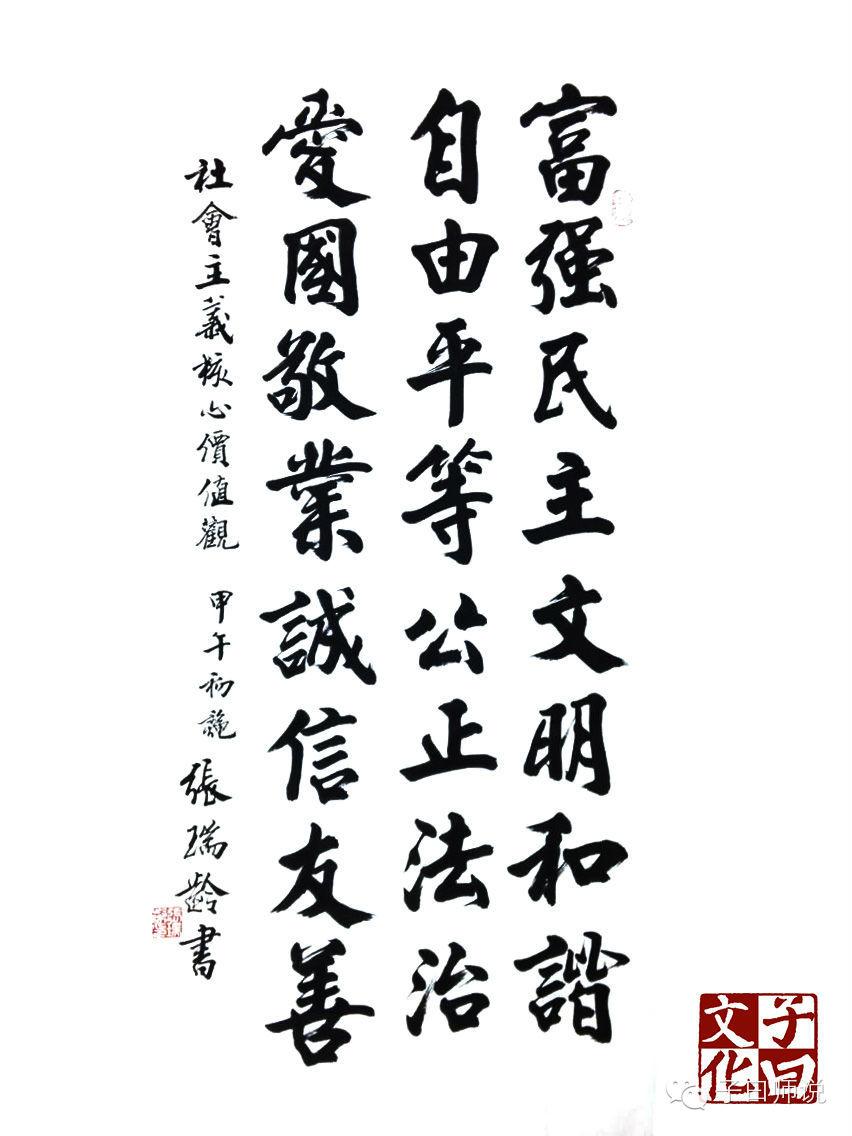 富强民主文明和諧
自由平等公正法治
愛國敬業誠信友善
社會主義核心價值觀 甲午初 張瑞齡書
子曰文化
子曰师说